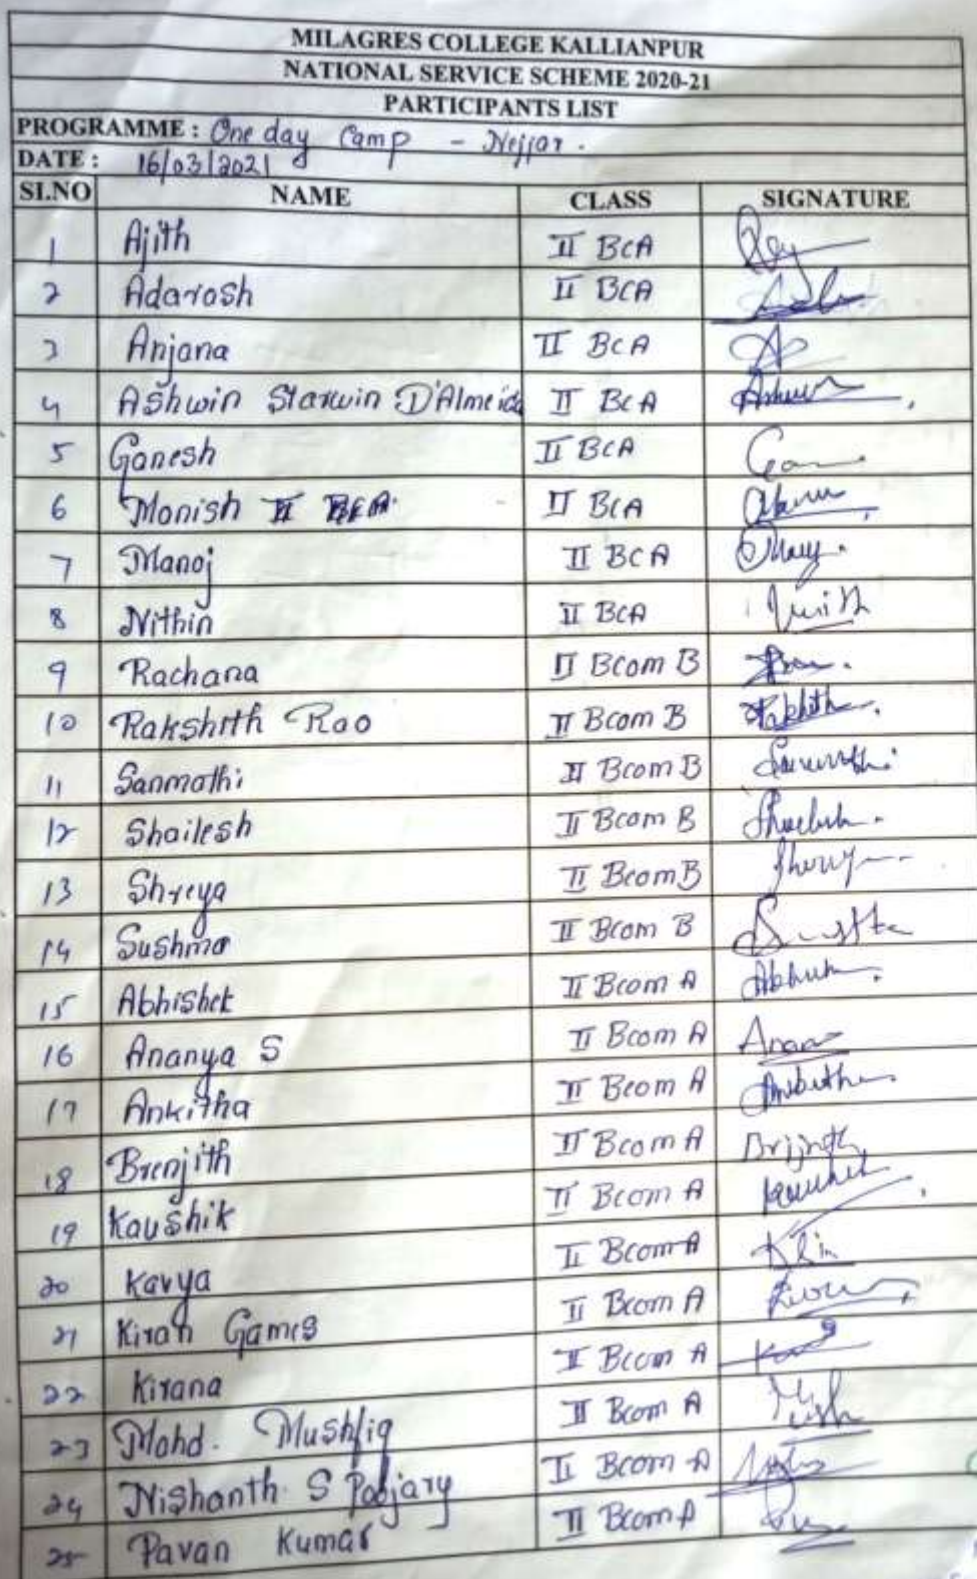 MILAGRES COLLEGE KALLIANPUR
NATIONAL SERVICE SCHEME 2020-21
PARTICIPANTS LIST
PROGRAMME : One day Camp - Nejjar.
DATE : 16/03/2021
SI.NO NAME CLASS SIGNATURE
1 Ajith II BCA
2 Adarosh II BCA
3 Anjana II BCA
4 Ashwin Starwin D'Almeida II BCA
5 Ganesh II BCA
6 Monish II BCA II BCA
7 Manoj II BCA
8 Nithin II BCA
9 Rachana II Bcom B
10 Rakshith Rao II Bcom B
11 Sanmathi II Bcom B
12 Shailesh II Bcom B
13 Shreya II Bcom B
14 Sushma II Bcom B
15 Abhishek II Bcom A
16 Ananya S II Bcom A
17 Ankitha II Bcom A
18 Brenjith II Bcom A
19 Kaushik II Bcom A
20 Kavya II Bcom A
21 Kiran Games II Bcom A
22 Kirana II Bcom A
23 Mohd. Mushfiq II Bcom A
24 Nishanth S Poojary II Bcom A
25 Pavan Kumar II Bcom A